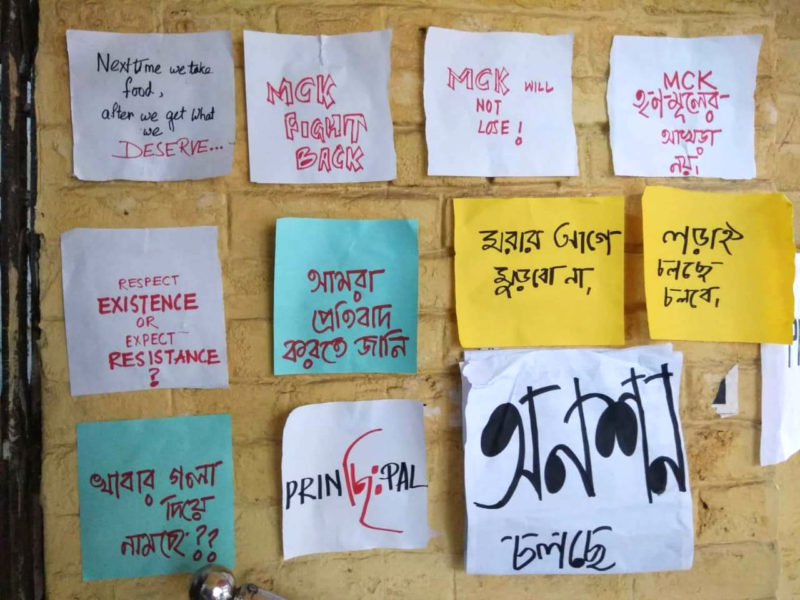 Next time we take
food,
after we get what
we
DESERVE...
MCK
FIGHT
BACK
MCK WILL
NOT
LOSE!
MCK
তৃণমূলের
আখড়া
নয়,
RESPECT
EXISTENCE
OR
EXPECT
RESISTANCE
?
আমরা
প্রতিবাদ
করতে জানি
মরার আগে
মুড়বো না,
লড়াই
চলছে
চলবে,
খাবার গলা
দিয়ে
নামছে??
PRINছিঃPAL
অনশন
চলছে